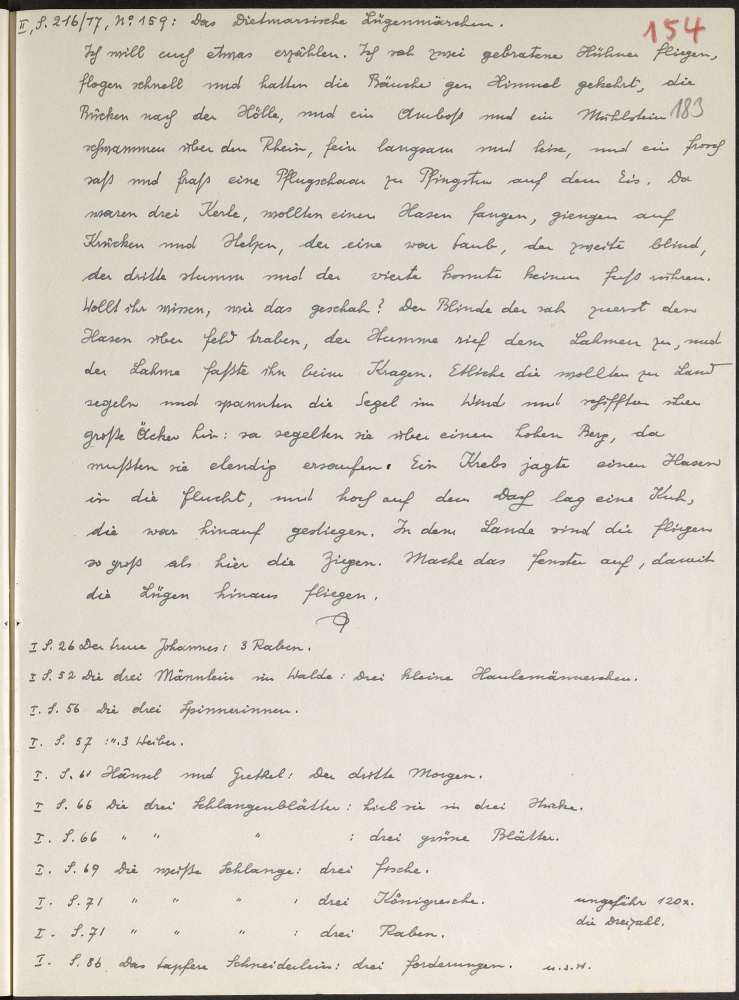 154
II, S. 216/17, No. 159: Das Dietmarsische Lügenmärchen.
Ich will euch etwas erzählen. Ich sah zwei gebratene Hühner fliegen,
flogen schnell und hatten die Bäuche gen Himmel gekehrt, die
Rücken nach der Hölle, und ein Amboß und ein Mühlstein 183
schwammen über den Rhein, fein langsam und leise, und ein Frosch
saß und fraß eine Pflugschaar zu Pfingsten auf dem Eis. Da
waren drei Kerle, wollten einen Hasen fangen, giengen auf
Krücken und Stelzen, der eine war taub, der zweite blind,
der dritte stumm und der vierte konnte keinen Fuß rühren.
Wollt ihr wissen, wie das geschah? Der Blinde der sah zuerst den
Hasen über Feld traben, der Stumme rief dem Lahmen zu, und
der Lahme faßte ihn beim Kragen. Etliche die wollten zu Land
segeln und spannten die Segel im Wind und schifften über
große Äcker hin: da segelten sie über einen hohen Berg, da
mußten sie elendig ersaufen. Ein Krebs jagte einen Hasen
in die Flucht, und hoch auf dem Dach lag eine Kuh,
die war hinauf gestiegen. In dem Lande sind die Fliegen
so groß als hier die Ziegen. Mache das Fenster auf, damit
die Lügen hinaus fliegen.
I S. 26 Der treue Johannes: 3 Raben.
I S. 52 Die drei Männlein im Walde: Drei kleine Haulemännerchen.
I. S. 56 Die drei Spinnerinnen.
I. S. 57 : ". 3 Weiber.
I. S. 61 Hänsel und Grethel: Der dritte Morgen.
I S. 66 Die drei Schlangenblätter: hieb sie in drei Stücke.
I. S. 66 " " " : drei grüne Blätter.
I. S. 69 Die weiße Schlange: drei Fische.
I. S. 71 " " " : drei Königreiche. ungefähr 120x.
die Dreizahl.
I. S. 71 " " " : drei Raben.
I. S. 86 Das tapfere Schneiderlein: drei Forderungen. u.s.w.